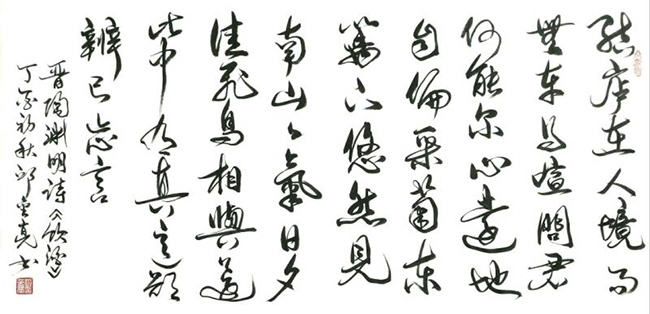 结庐在人境而
無车马喧問君
何能尔心遠地
自偏采菊东
籬下悠然見
南山々氣日夕
佳飛鸟相與还
此中有真意欲
辨已忘言
晋陶渊明诗《饮酒》
丁亥初秋邱亮书